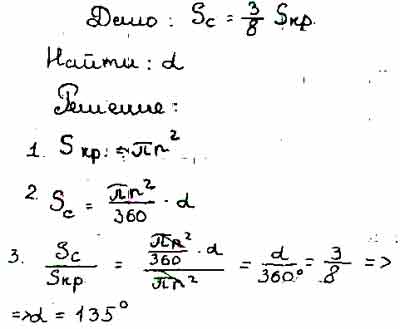 Дано: Sс = 3/8 Sкр.
Найти: α
Решение:
1. Sкр. = πr²
2. Sс = πr²/360 · α
3. Sс/Sкр = (πr²/360 · α)/πr² = α/360° = 3/8 =>
=> α = 135°